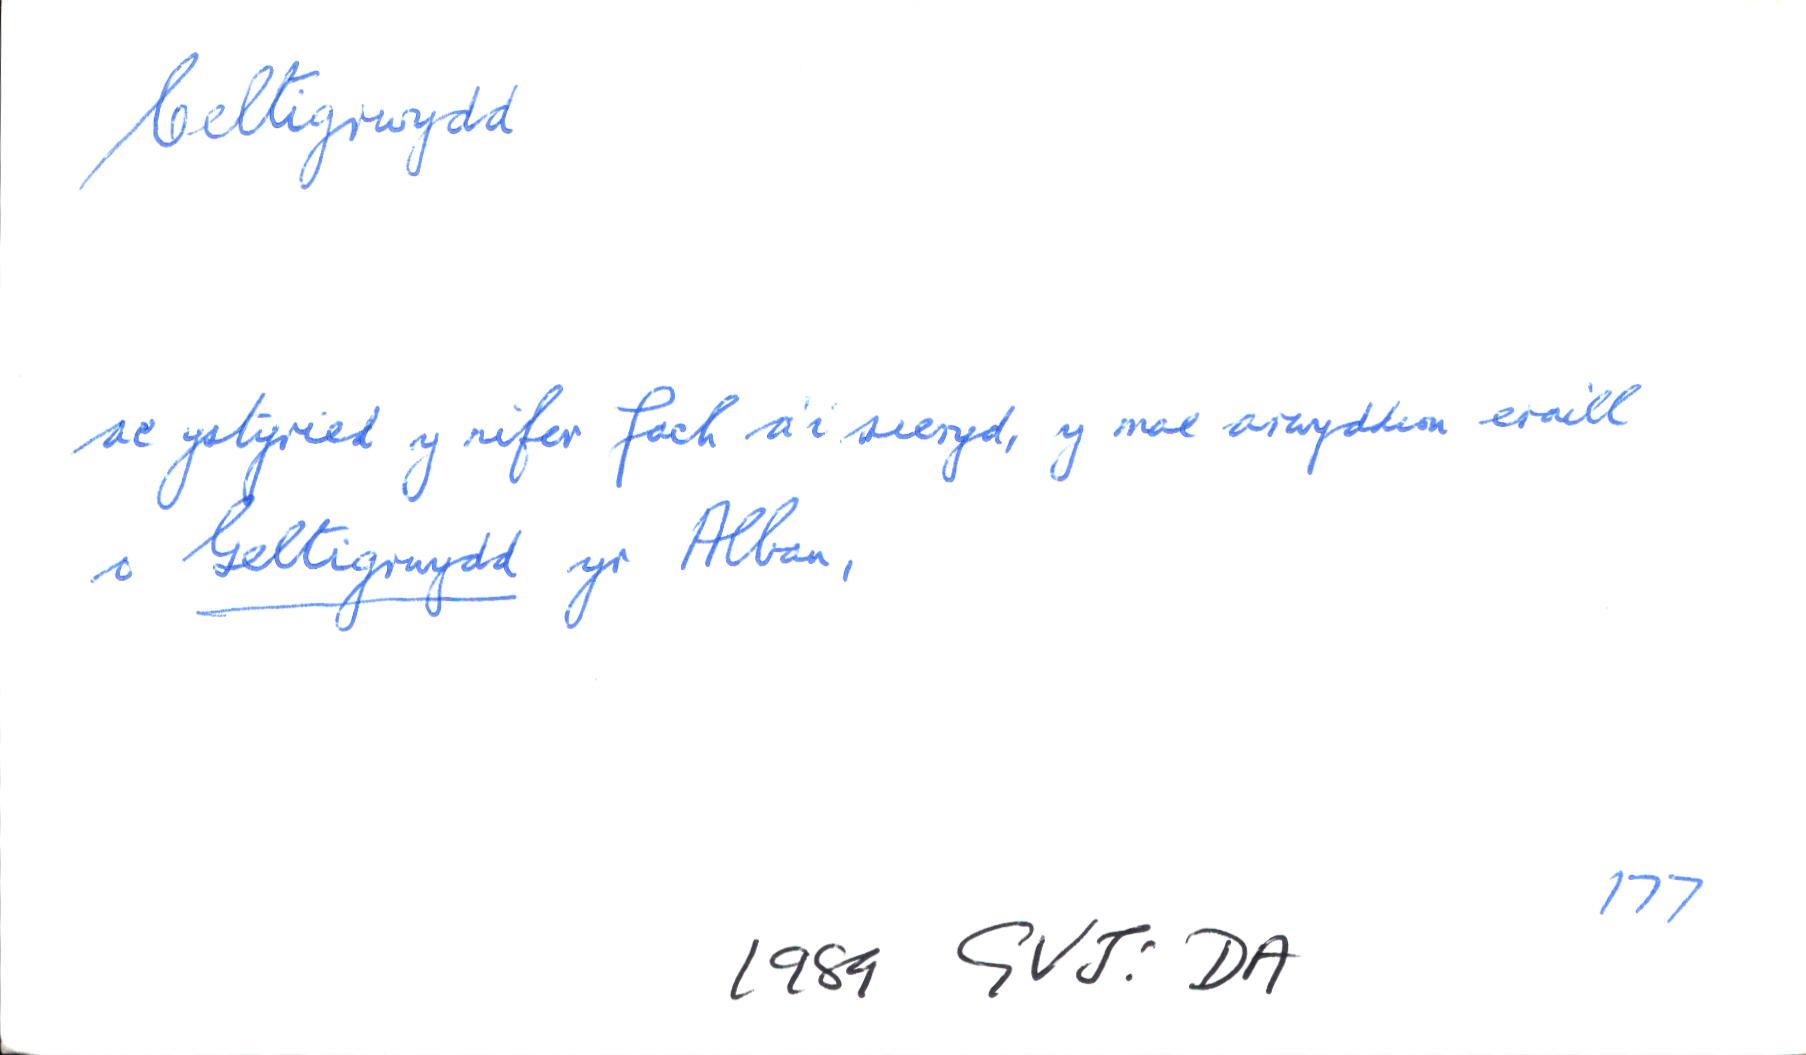 Celtigrwydd
ac ystyried y nifer fach a'i sieryd, y mae arwyddion eraill
o Geltigrwydd yr Alban,
177
1989 GVJ: DA